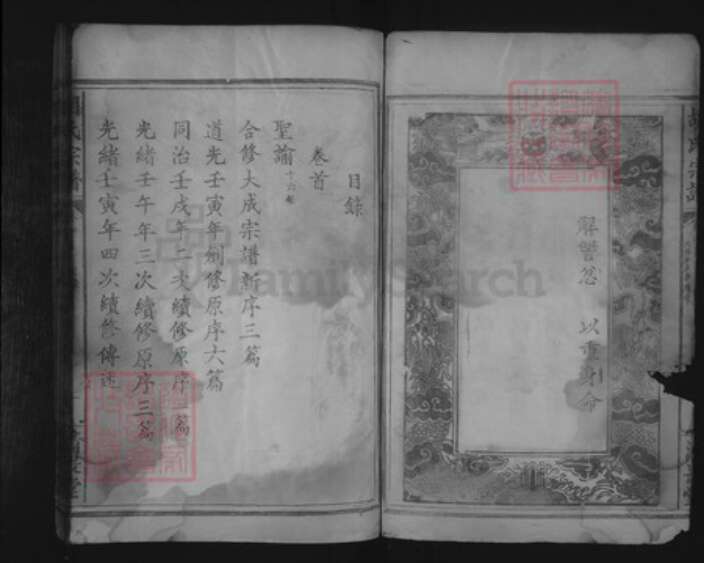 氏宗譜
解讐忿 以重身命
目錄
卷首
聖諭十六
合修大成宗譜新序三篇
道光壬寅年創修原序六篇
同治壬戌年二次續修原序篇
光緒壬午年三次續修原序三篇
光緒壬寅年四次續修傳述
氏宗譜
FamilySearch